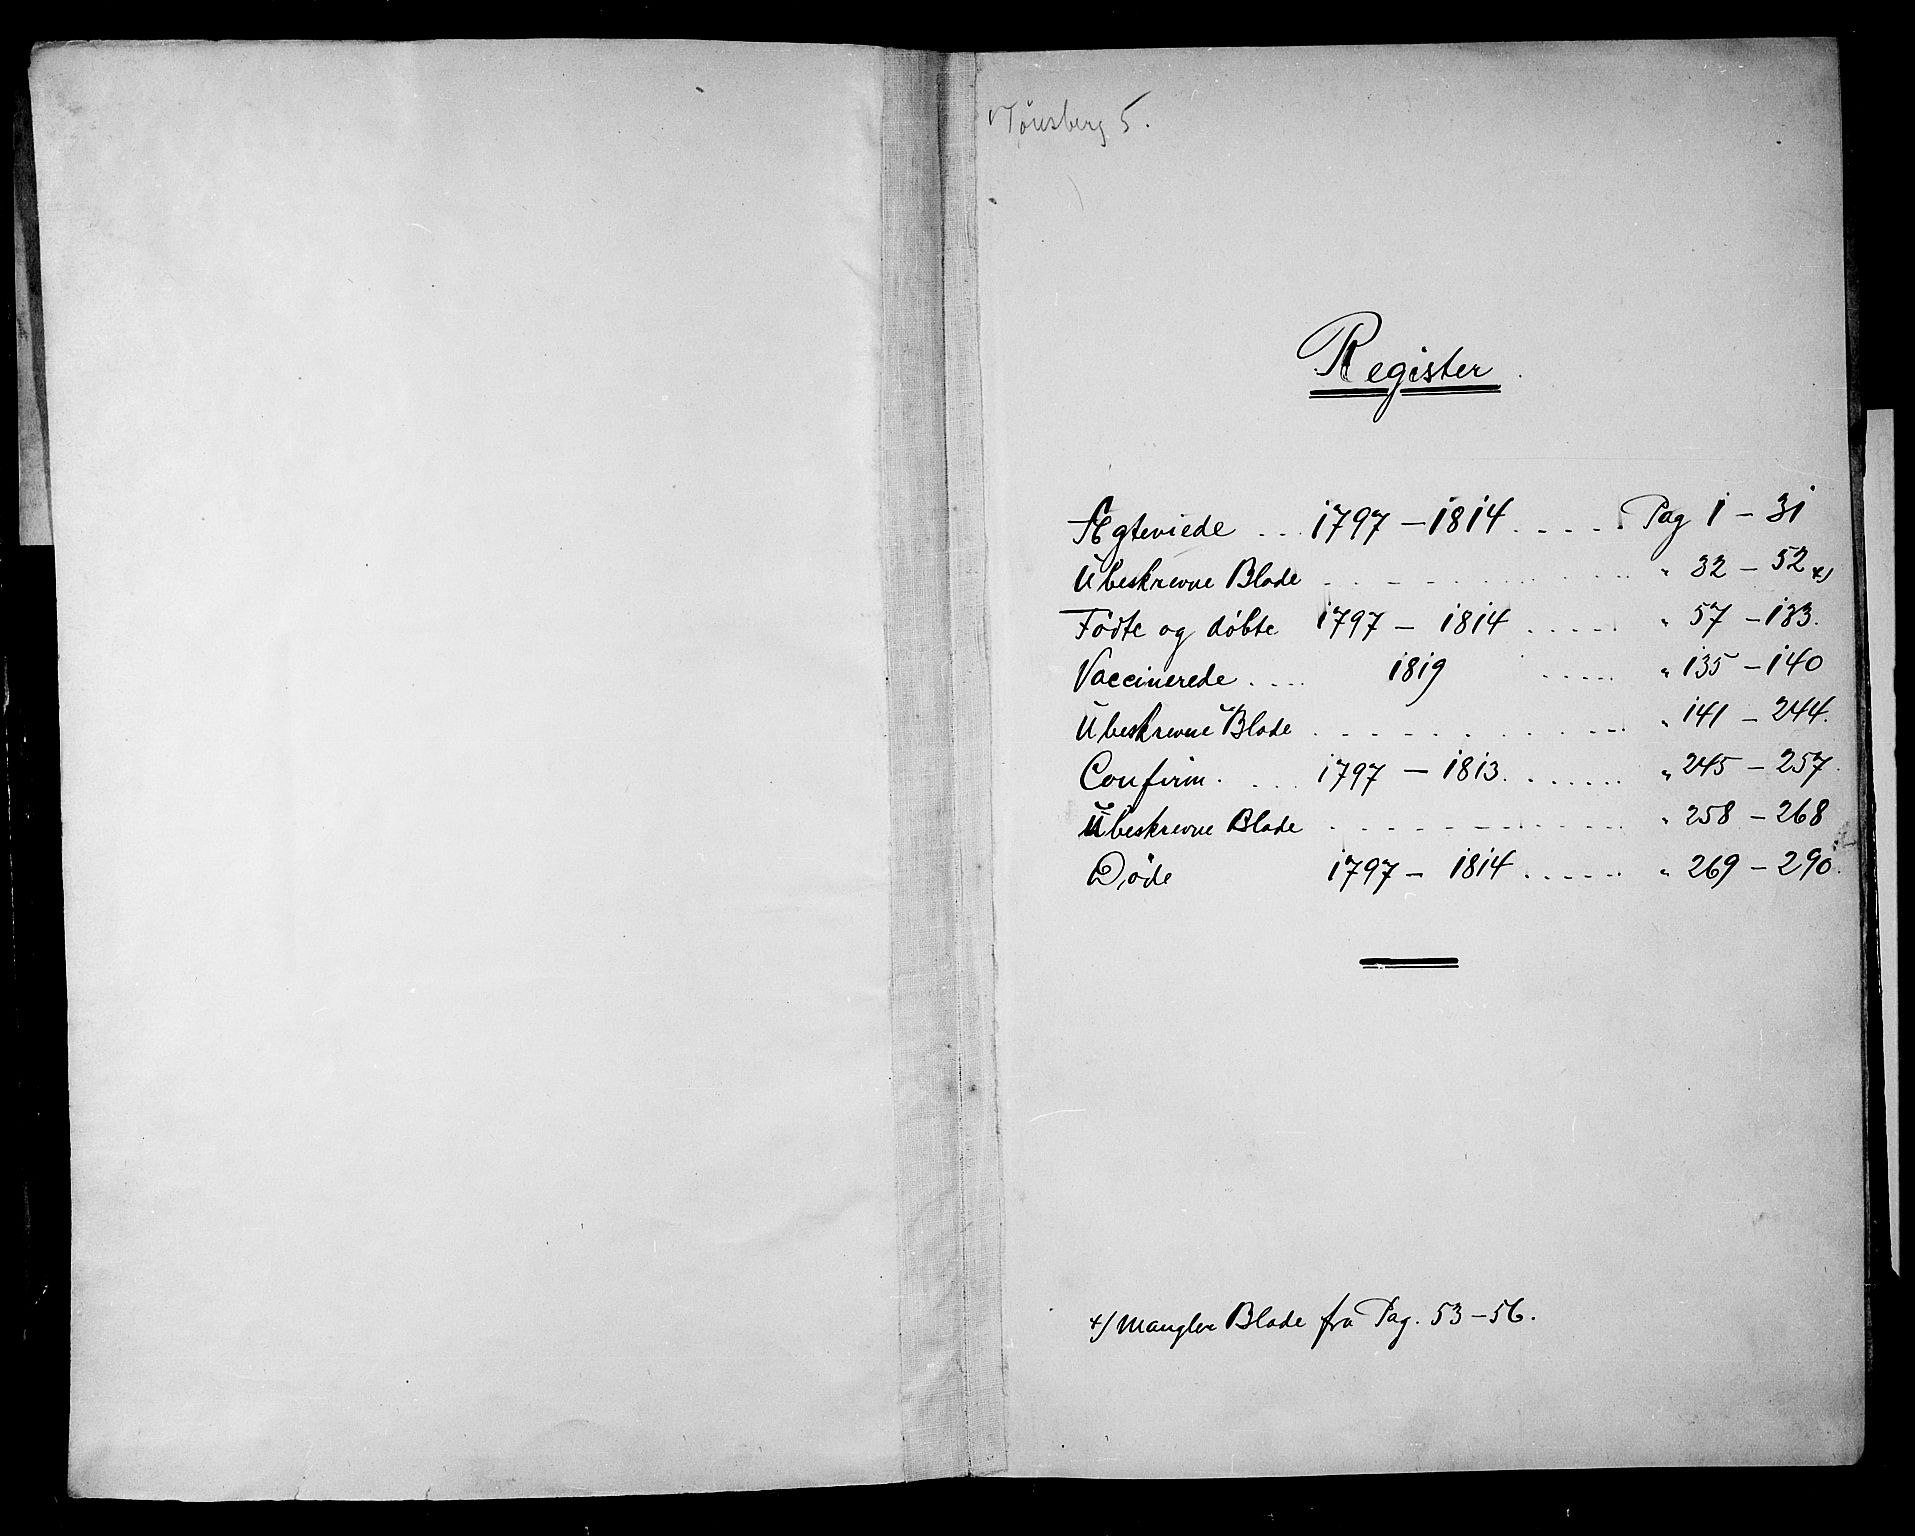 Tønsberg 5.
Register
Ægteviede . . . 1797 – 1814 . . . . . Pag 1 – 31
Ubeskrevne Blade . . . . . . . . . . " 32 – 52 x)
Fødte og døbte 1797 – 1814 . . . . . " 57 – 133.
Vaccinerede . . . . 1819 . . . . . " 135 – 140
Ubeskrevne Blade . . . . . . . . . . " 141 – 244.
Confirm. . . . 1797 – 1813. . . . . . " 245 – 257.
Ubeskrevne Blade . . . . . . . . . . " 258 – 268
Døde 1797 – 1814 . . . . . . " 269 – 290.
x) Mangler Blade fra Pag. 53 – 56.